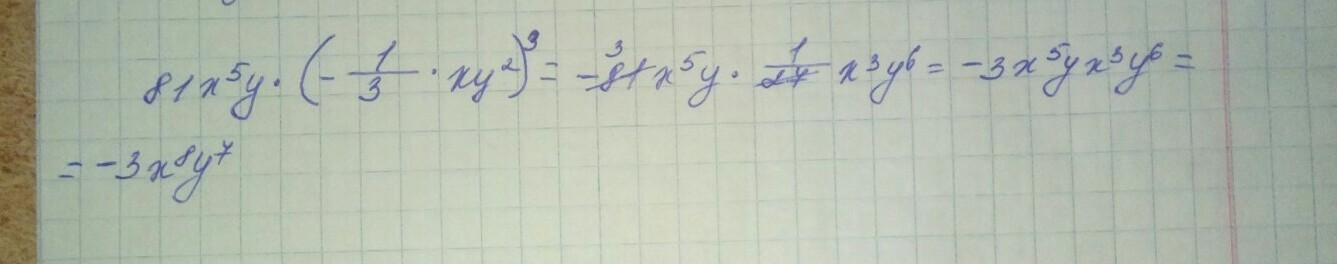 81x⁵y · (- 1/3 · xy²)³ = -81x⁵y · 1/27 x³y⁶ = -3x⁵yx³y⁶ =
= -3x⁸y⁷